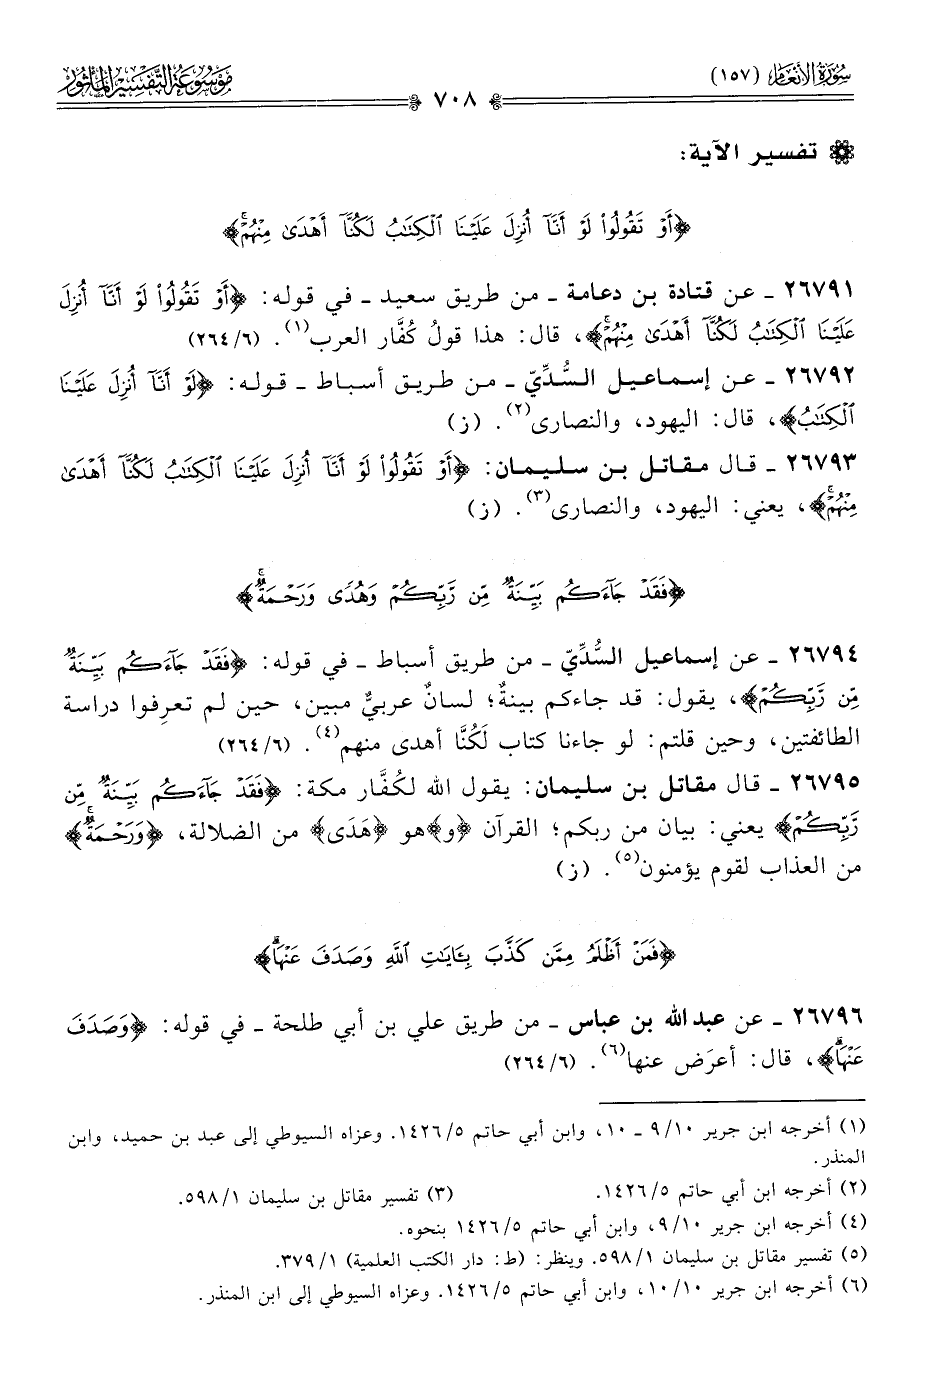 سُورَةُ الأَنْعَام (١٥٧)
٧٠٨
مَوْسُوعَةُ التَّفْسِيرِ المَأْثُور
تفسير الآية:
﴿أَوْ تَقُولُوا۟ لَوْ أَنَّآ أُنزِلَ عَلَيْنَا ٱلْكِتَٰبُ لَكُنَّآ أَهْدَىٰ مِنْهُمْۚ﴾
٢٦٧٩١ ـ عن قتادة بن دعامة ـ من طريق سعيد ـ في قوله: ﴿أَوْ تَقُولُوا۟ لَوْ أَنَّآ أُنزِلَ
عَلَيْنَا ٱلْكِتَٰبُ لَكُنَّآ أَهْدَىٰ مِنْهُمْۚ﴾، قال: هذا قولُ كُفَّار العرب(١). (٢٦٤/٦)
٢٦٧٩٢ ـ عن إسماعيل السُّدِّيّ ـ من طريق أسباط ـ قوله: ﴿لَوْ أَنَّآ أُنزِلَ عَلَيْنَا
ٱلْكِتَٰبُ﴾، قال: اليهود، والنصارى(٢). (ز)
٢٦٧٩٣ ـ قال مقاتل بن سليمان: ﴿أَوْ تَقُولُوا۟ لَوْ أَنَّآ أُنزِلَ عَلَيْنَا ٱلْكِتَٰبُ لَكُنَّآ أَهْدَىٰ
مِنْهُمْۚ﴾، يعني: اليهود، والنصارى(٣). (ز)
﴿فَقَدْ جَآءَكُم بَيِّنَةٌ مِّن رَّبِّكُمْ وَهُدًى وَرَحْمَةٌۚ﴾
٢٦٧٩٤ ـ عن إسماعيل السُّدِّيّ ـ من طريق أسباط ـ في قوله: ﴿فَقَدْ جَآءَكُم بَيِّنَةٌ
مِّن رَّبِّكُمْ﴾، يقول: قد جاءكم بينةٌ؛ لسانٌ عربيٌّ مبين، حين لم تعرِفوا دراسة
الطائفتين، وحين قلتم: لو جاءنا كتاب لَكُنَّا أهدى منهم(٤). (٢٦٤/٦)
٢٦٧٩٥ ـ قال مقاتل بن سليمان: يقول الله لكُفَّار مكة: ﴿فَقَدْ جَآءَكُم بَيِّنَةٌ مِّن
رَّبِّكُمْ﴾ يعني: بيان من ربكم؛ القرآن ﴿و﴾هو ﴿هُدًى﴾ من الضلالة، ﴿وَرَحْمَةٌۚ﴾
من العذاب لقوم يؤمنون(٥). (ز)
﴿فَمَنْ أَظْلَمُ مِمَّن كَذَّبَ بِـَٔايَٰتِ ٱللَّهِ وَصَدَفَ عَنْهَاۗ﴾
٢٦٧٩٦ ـ عن عبد الله بن عباس ـ من طريق علي بن أبي طلحة ـ في قوله: ﴿وَصَدَفَ
عَنْهَاۗ﴾، قال: أعرَض عنها(٦). (٢٦٤/٦)
(١) أخرجه ابن جرير ٩/١٠ ـ ١٠، وابن أبي حاتم ١٤٢٦/٥. وعزاه السيوطي إلى عبد بن حميد، وابن
المنذر.
(٢) أخرجه ابن أبي حاتم ١٤٢٦/٥. (٣) تفسير مقاتل بن سليمان ٥٩٨/١.
(٤) أخرجه ابن جرير ٩/١٠، وابن أبي حاتم ١٤٢٦/٥ بنحوه.
(٥) تفسير مقاتل بن سليمان ٥٩٨/١. وينظر: (ط: دار الكتب العلمية) ٣٧٩/١.
(٦) أخرجه ابن جرير ١٠/١٠، وابن أبي حاتم ١٤٢٦/٥. وعزاه السيوطي إلى ابن المنذر.